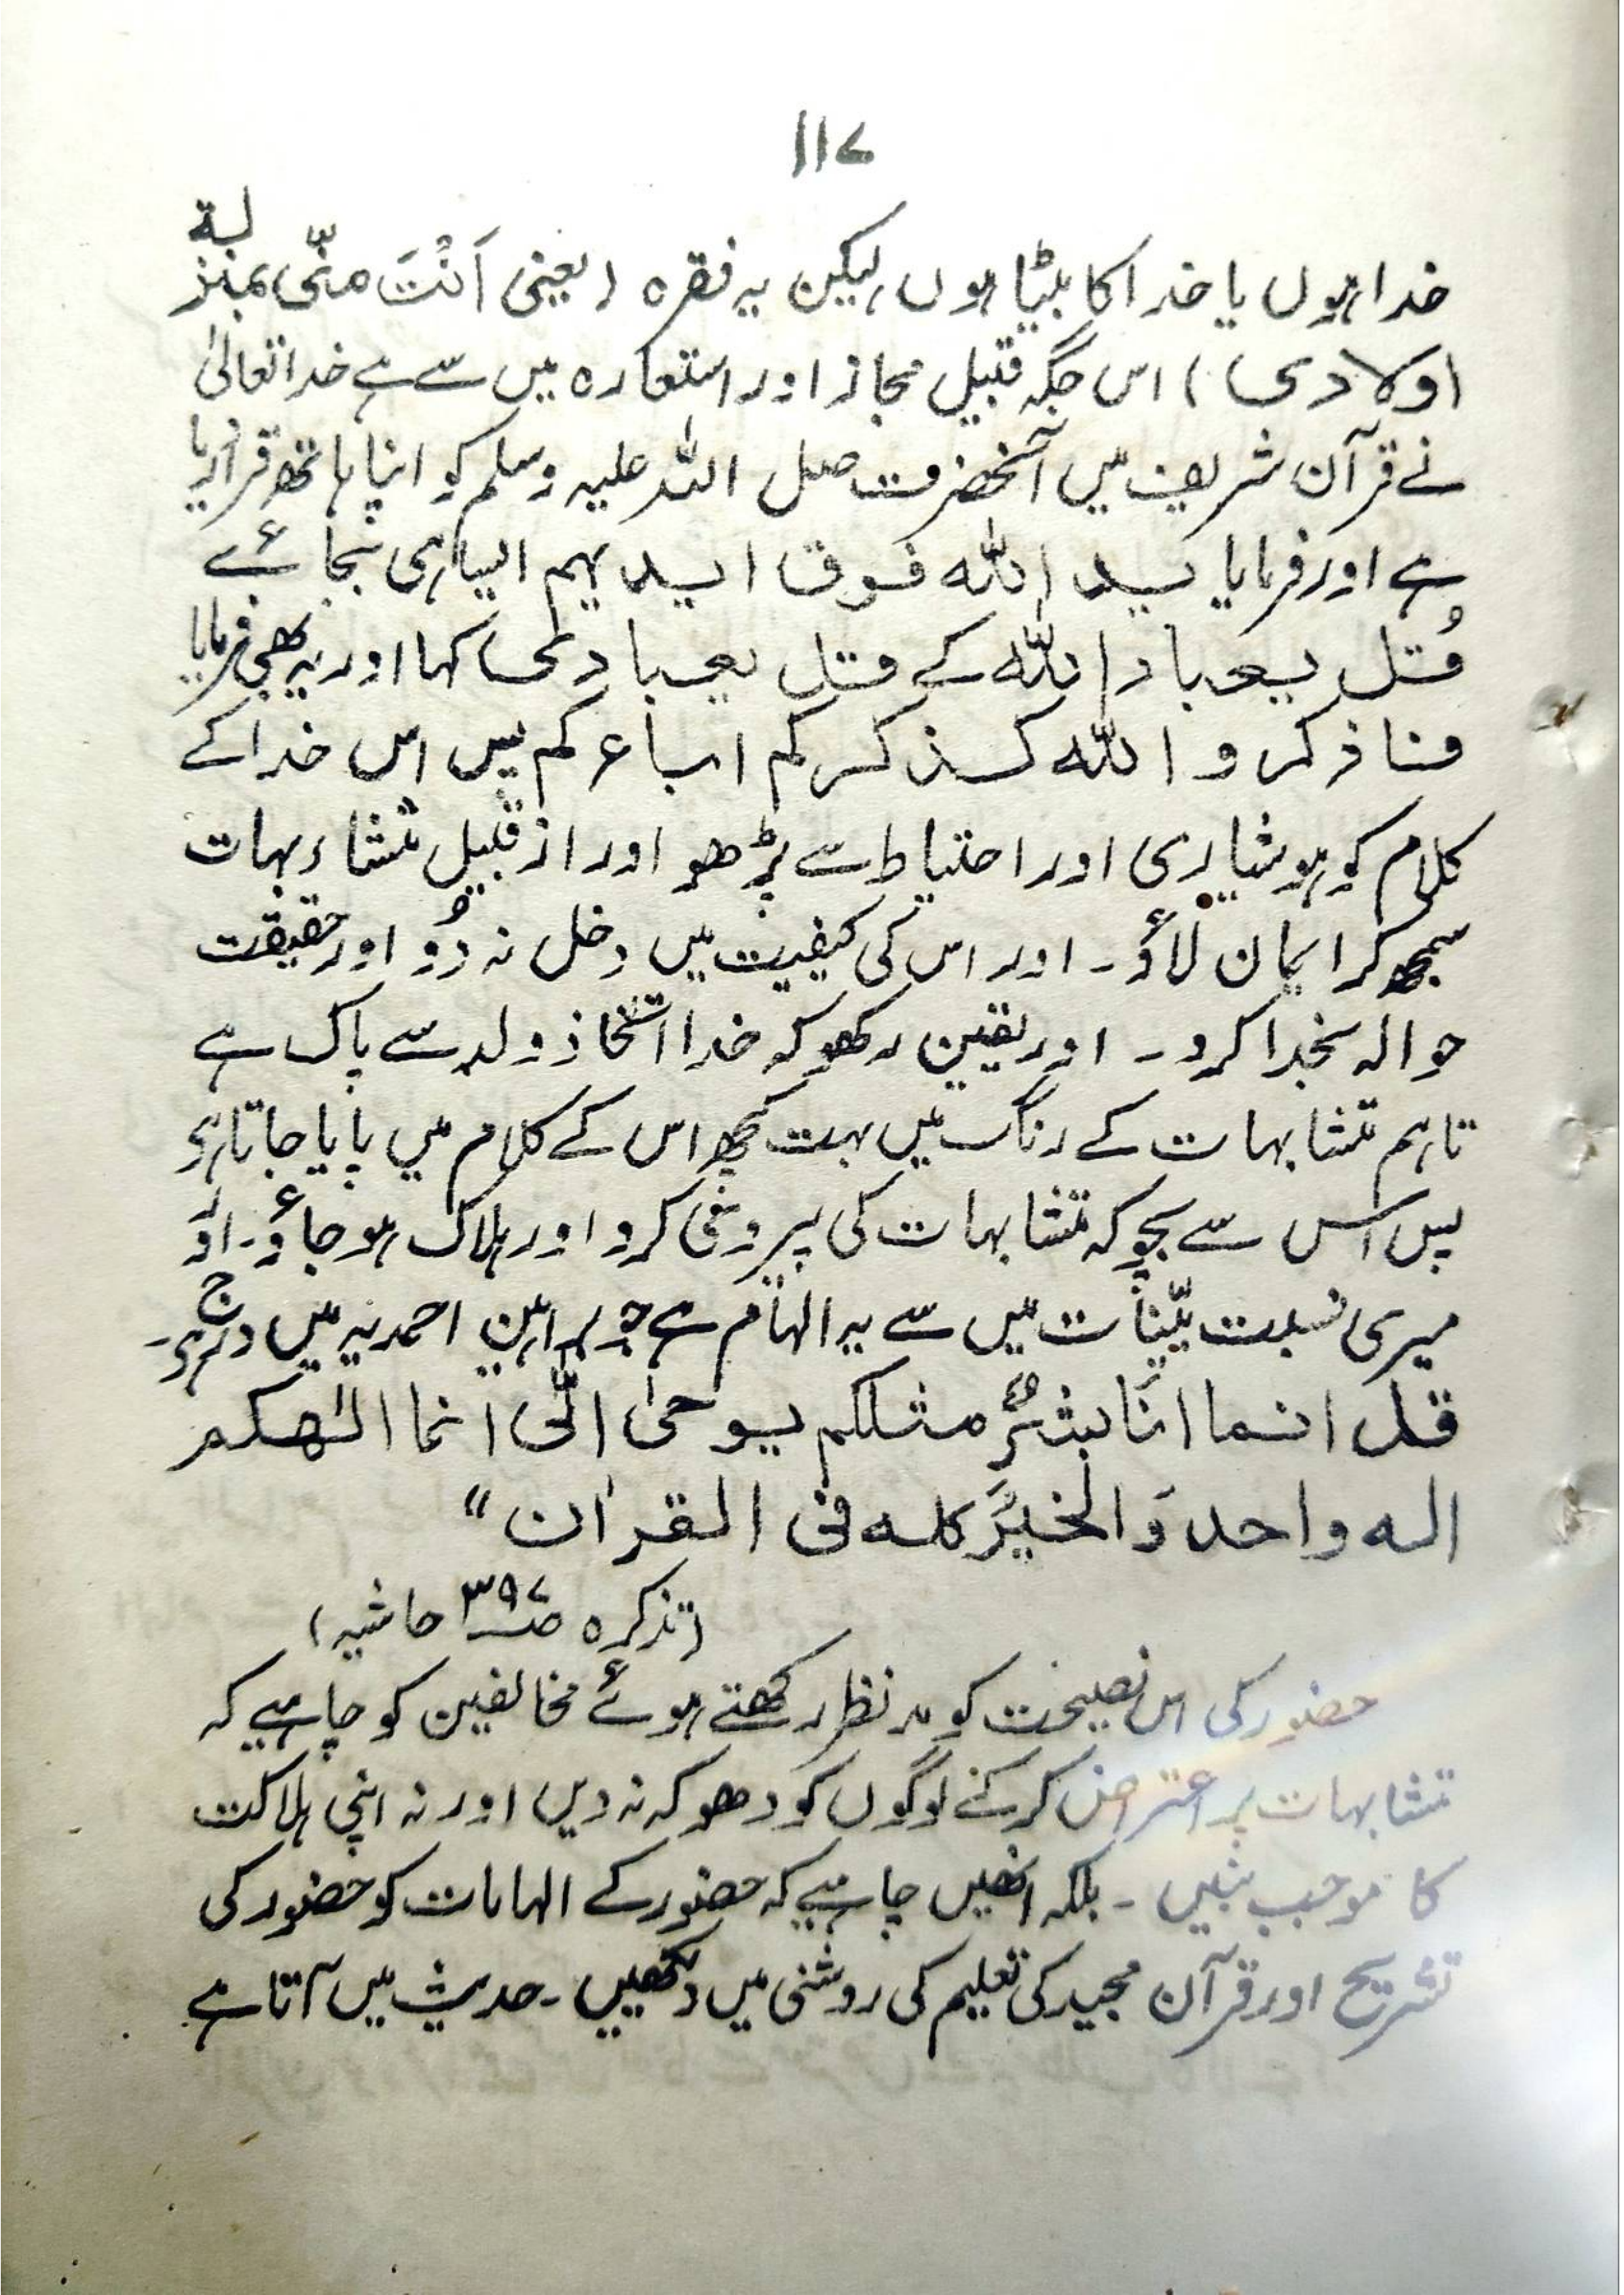 ۱۱۷
خدا ہوں یا خدا کا بیٹا ہوں، لیکن یہ فقرہ (یعنی اَنْتَ منّی بمنزلۃ
اولادی) اس جگہ قبیل مجاز اور استعارہ میں سے ہے خدا تعالیٰ
نے قرآن شریف میں آنحضرت صلی اللہ علیہ وسلم کو اپنا ہاتھ قرار دیا
ہے اور فرمایا ید اللہ فوق ایدیہم ایسا ہی بجائے
قُل یعباد اللہ کے قل یعبادی کہا اور یہ بھی فرمایا
فاذکرو اللہ کذکرکم اباءکم پس اس خدا کے
کلام کو ہوشیاری اور احتیاط سے پڑھو اور از قبیل متشابہات
سمجھ کر ایمان لاؤ۔ اور اس کی کیفیت میں دخل نہ دُو اور حقیقت
حوالہ بخدا کرو۔ اور یقین رکھو کہ خدا اتخاذ ولد سے پاک ہے
تاہم متشابہات کے رنگ میں بہت کچھ اس کے کلام میں پایا جاتا ہے
پس اس سے بچو کہ متشابہات کی پیروی کرو اور ہلاک ہو جاؤ۔ اور
میری نسبت بیّنات میں سے یہ الہام ہے جو براہین احمدیہ میں درج ہے۔
قل انما انا بشرٌ مثلکم یوحیٰ الیّ انما الٰھکم
الہ واحد وَالخیرُ کلہ فی القراٰن"
(تذکرہ صـ۳۹۷ حاشیہ)
حضور کی اس نصیحت کو مدنظر رکھتے ہوئے مخالفین کو چاہیے کہ
متشابہات پر اعتراض کرکے لوگوں کو دھوکہ نہ دیں اور نہ اپنی ہلاکت
کا موجب بنیں۔ بلکہ انھیں چاہیے کہ حضور کے الہامات کو حضور کی
تشریح اور قرآن مجید کی تعلیم کی روشنی میں دیکھیں۔ حدیث میں آتا ہے